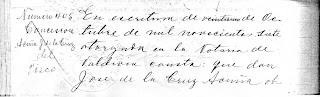 Número 405
Concesion
Acuña José de la Cruz
del
Fisco
En escritura de veintiuno de Oc-
tubre de mil novecientos siete
otorgada en la Notaria de
Valdivia consta: que don
José de la Cruz Acuña ob